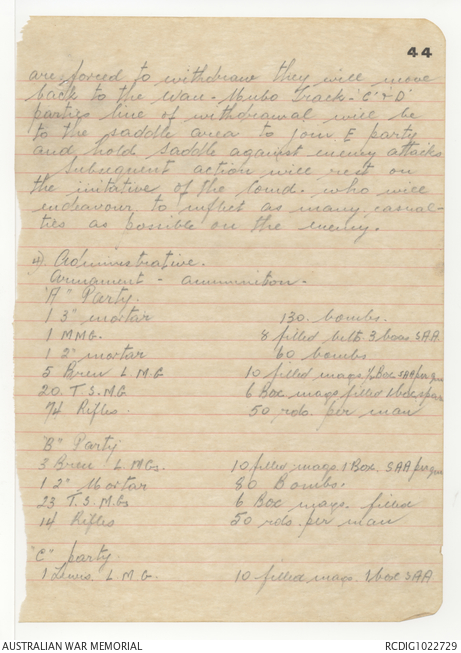 44
are forced to withdraw they will move
back to the Wau - Mubo Track - 'C' & 'D'
parties line of withdrawal will be
to the saddle area to join E party
and hold saddle against enemy attacks
Subsequent action will rest on
the initiative of the Comd. who will
endeavour to inflict as many casual-
ties as possible on the enemy.
4) Administrative.
Armament - ammunition.
"A" Party.
1 3" mortar 130. bombs.
1 M.M.G. 8 filled belts 3 boxes S.A.A.
1 2" mortar 60 bombs
5 Bren L.M.G 10 filled mags 1/2 Box SAA per gun
20. T.S.M.G 6 Box mags filled 1 box spare
74 Rifles. 50 rds. per man
"B" Party
3 Bren L.M.Gs. 10 filled mags. 1 Box. SAA per gun
1 2" Mortar 80 Bombs.
23 T.S.M.Gs 6 Box mags. filled
14 Rifles 50 rds. per man
"C" party.
1 Lewis L.M.G. 10 filled mags. 1 box SAA
AUSTRALIAN WAR MEMORIAL RCDIG1022729